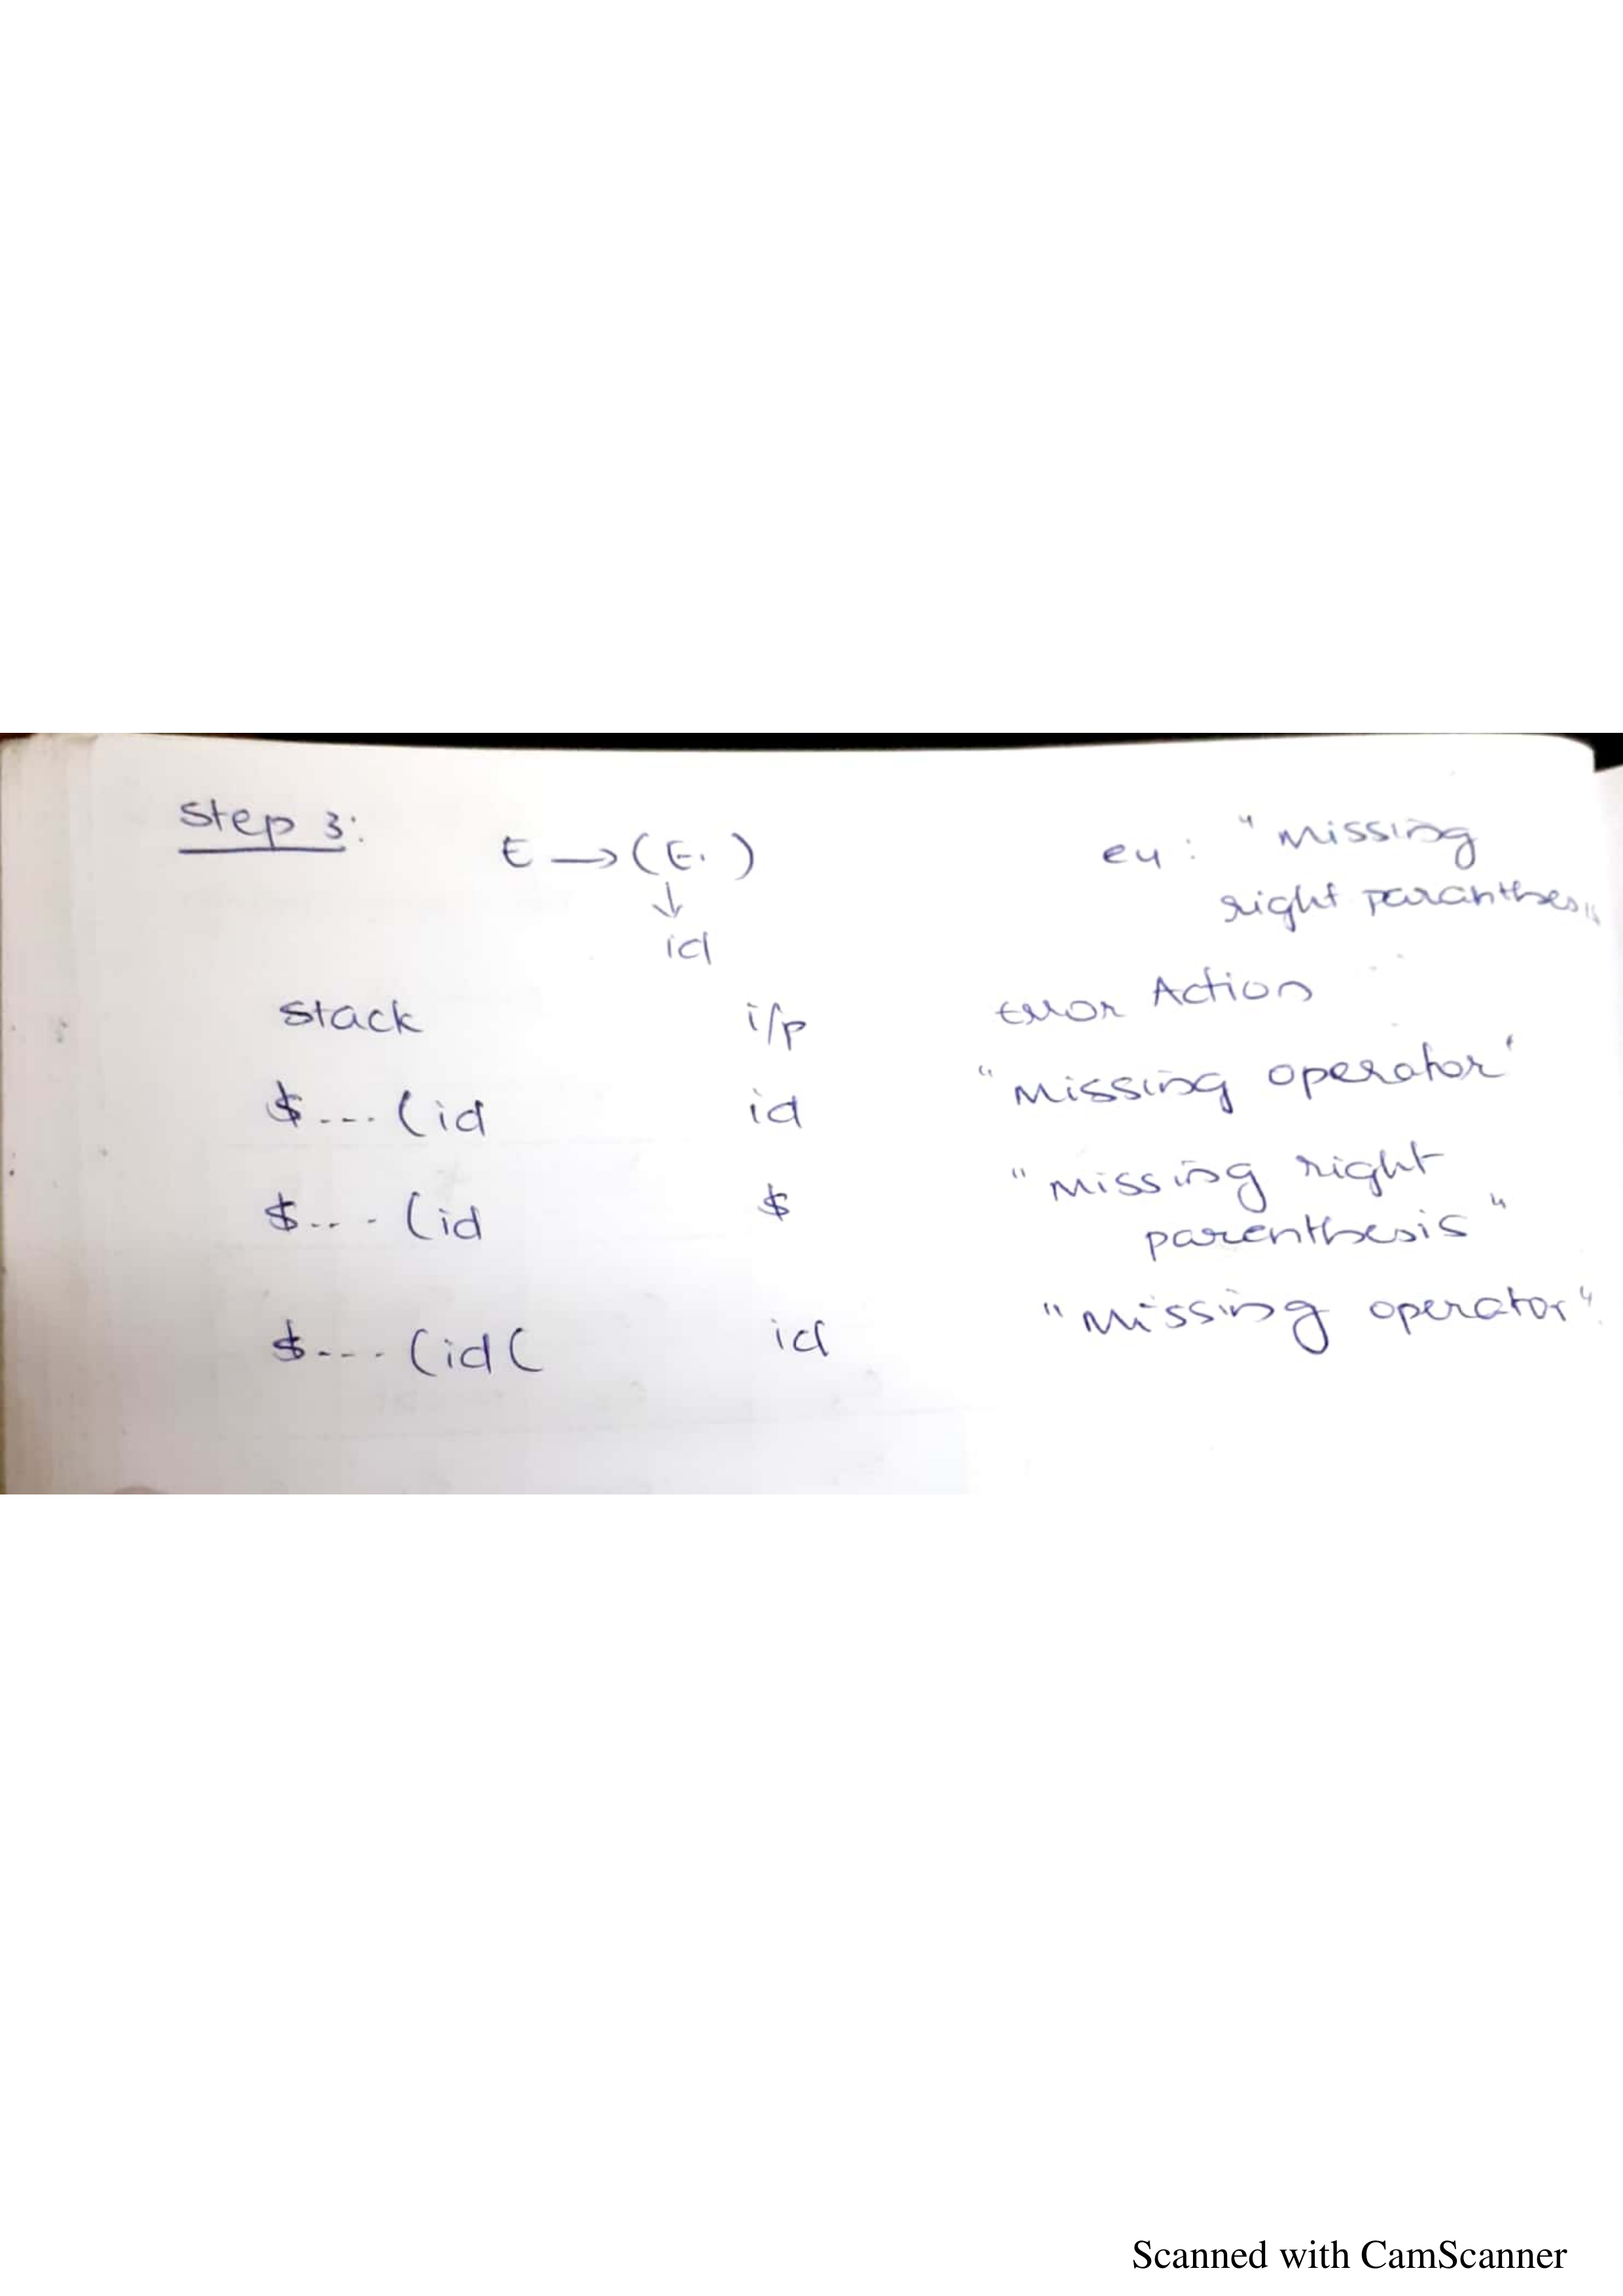 Step 3:
E → (E. )
e4 : "Missing
right paranthesis
↓
id
Stack i/p Error Action
$--- (id id "Missing operator"
$--- (id $ "Missing right
parenthesis"
$--- (id ( id "Missing operator"
Scanned with CamScanner